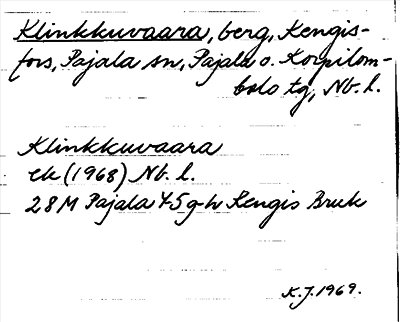 Klinkkuvaara, berg, Kengis-
fors, Pajala sn, Pajala o. Korpilom-
bolo tg, Nb. l.
Klinkkuvaara
ek (1968) Nb. l.
28M Pajala 4-5 g-h Kengis Bruk
K.J. 1969.